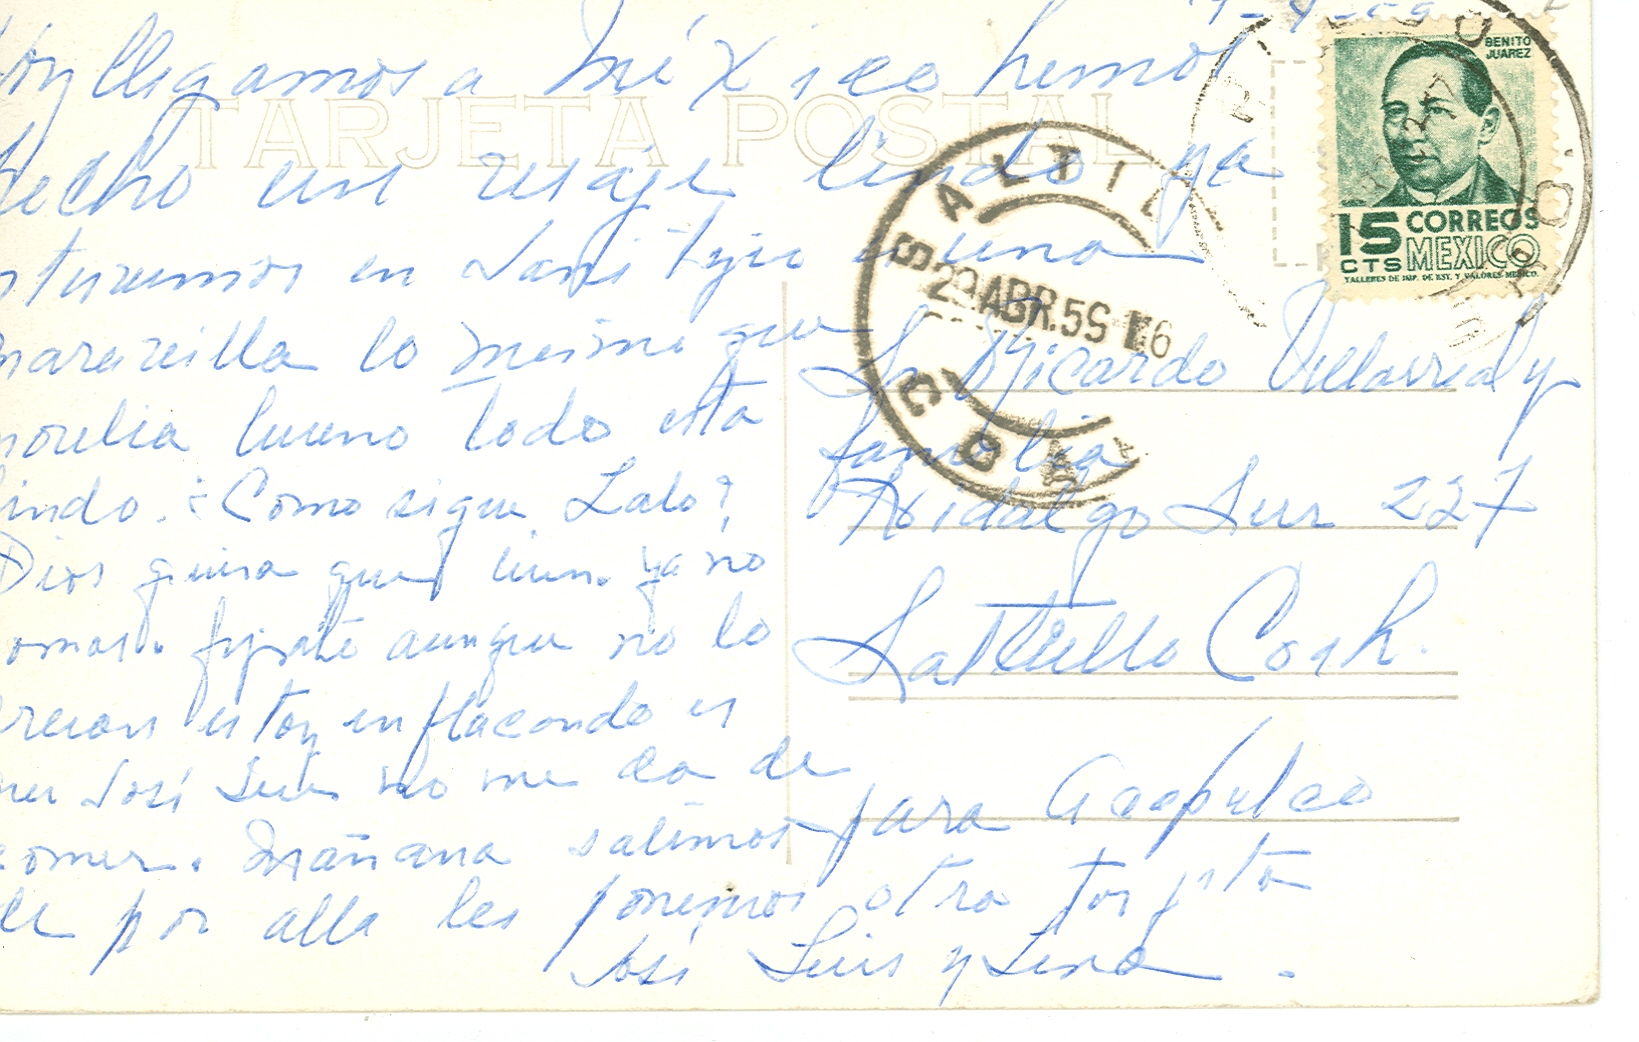 Hoy llegamos a México hemos
TARJETA POSTAL
hecho un viaje lindo ya
estuvimos en es una
maravilla lo mismo que
morelia bueno todo esta
lindo. ¿Como sigue Lalo?
Dios quiera que bien. ya no
fijate aunque no lo
crean estoy enflacando es
que José Luis no me da de
comer. Mañana salimos para Acapulco
de por alla les ponemos otra
José Luis y
BENITO
JUAREZ
15
CTS
CORREOS
MEXICO
TALLERES DE IMP. DE EST. Y VALORES-MEXICO.
SALTIL
29 ABR. 59
Sr. Ricardo Villarreal y
familia
Hidalgo Sur 227
Saltillo Coah.